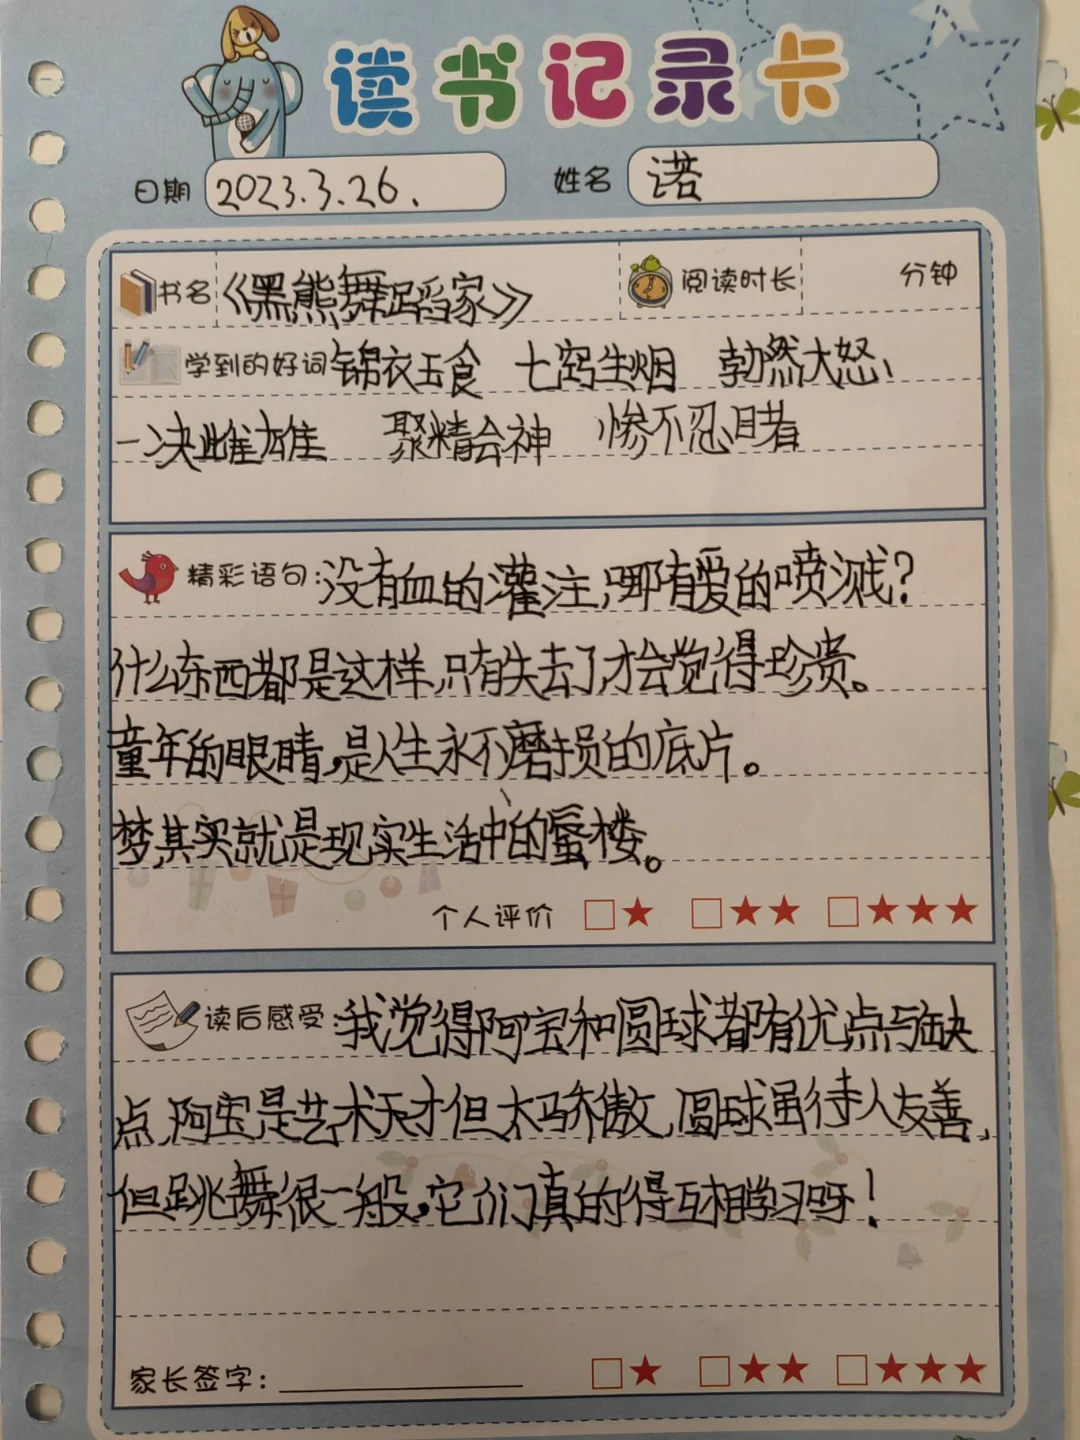 读书记录卡
日期 2023.3.26. 姓名 诺
书名 《黑熊舞蹈家》 阅读时长 分钟
学到的好词 锦衣玉食 七窍生烟 勃然大怒、
一决雌雄 聚精会神 惨不忍睹
精彩语句:没有血的灌注,哪有爱的喷溅?
什么东西都是这样,只有失去了,才会觉得珍贵。
童年的眼睛,是人生永不磨损的底片。
梦,其实就是现实生活中的蜃楼。
个人评价 □★ □★★ □★★★
读后感受:我觉得阿宝和圆球都有优点与缺
点,阿宝是艺术天才但太骄傲,圆球虽待人友善,
但跳舞很一般,它们真的得互相学习呀!
家长签字: □★ □★★ □★★★